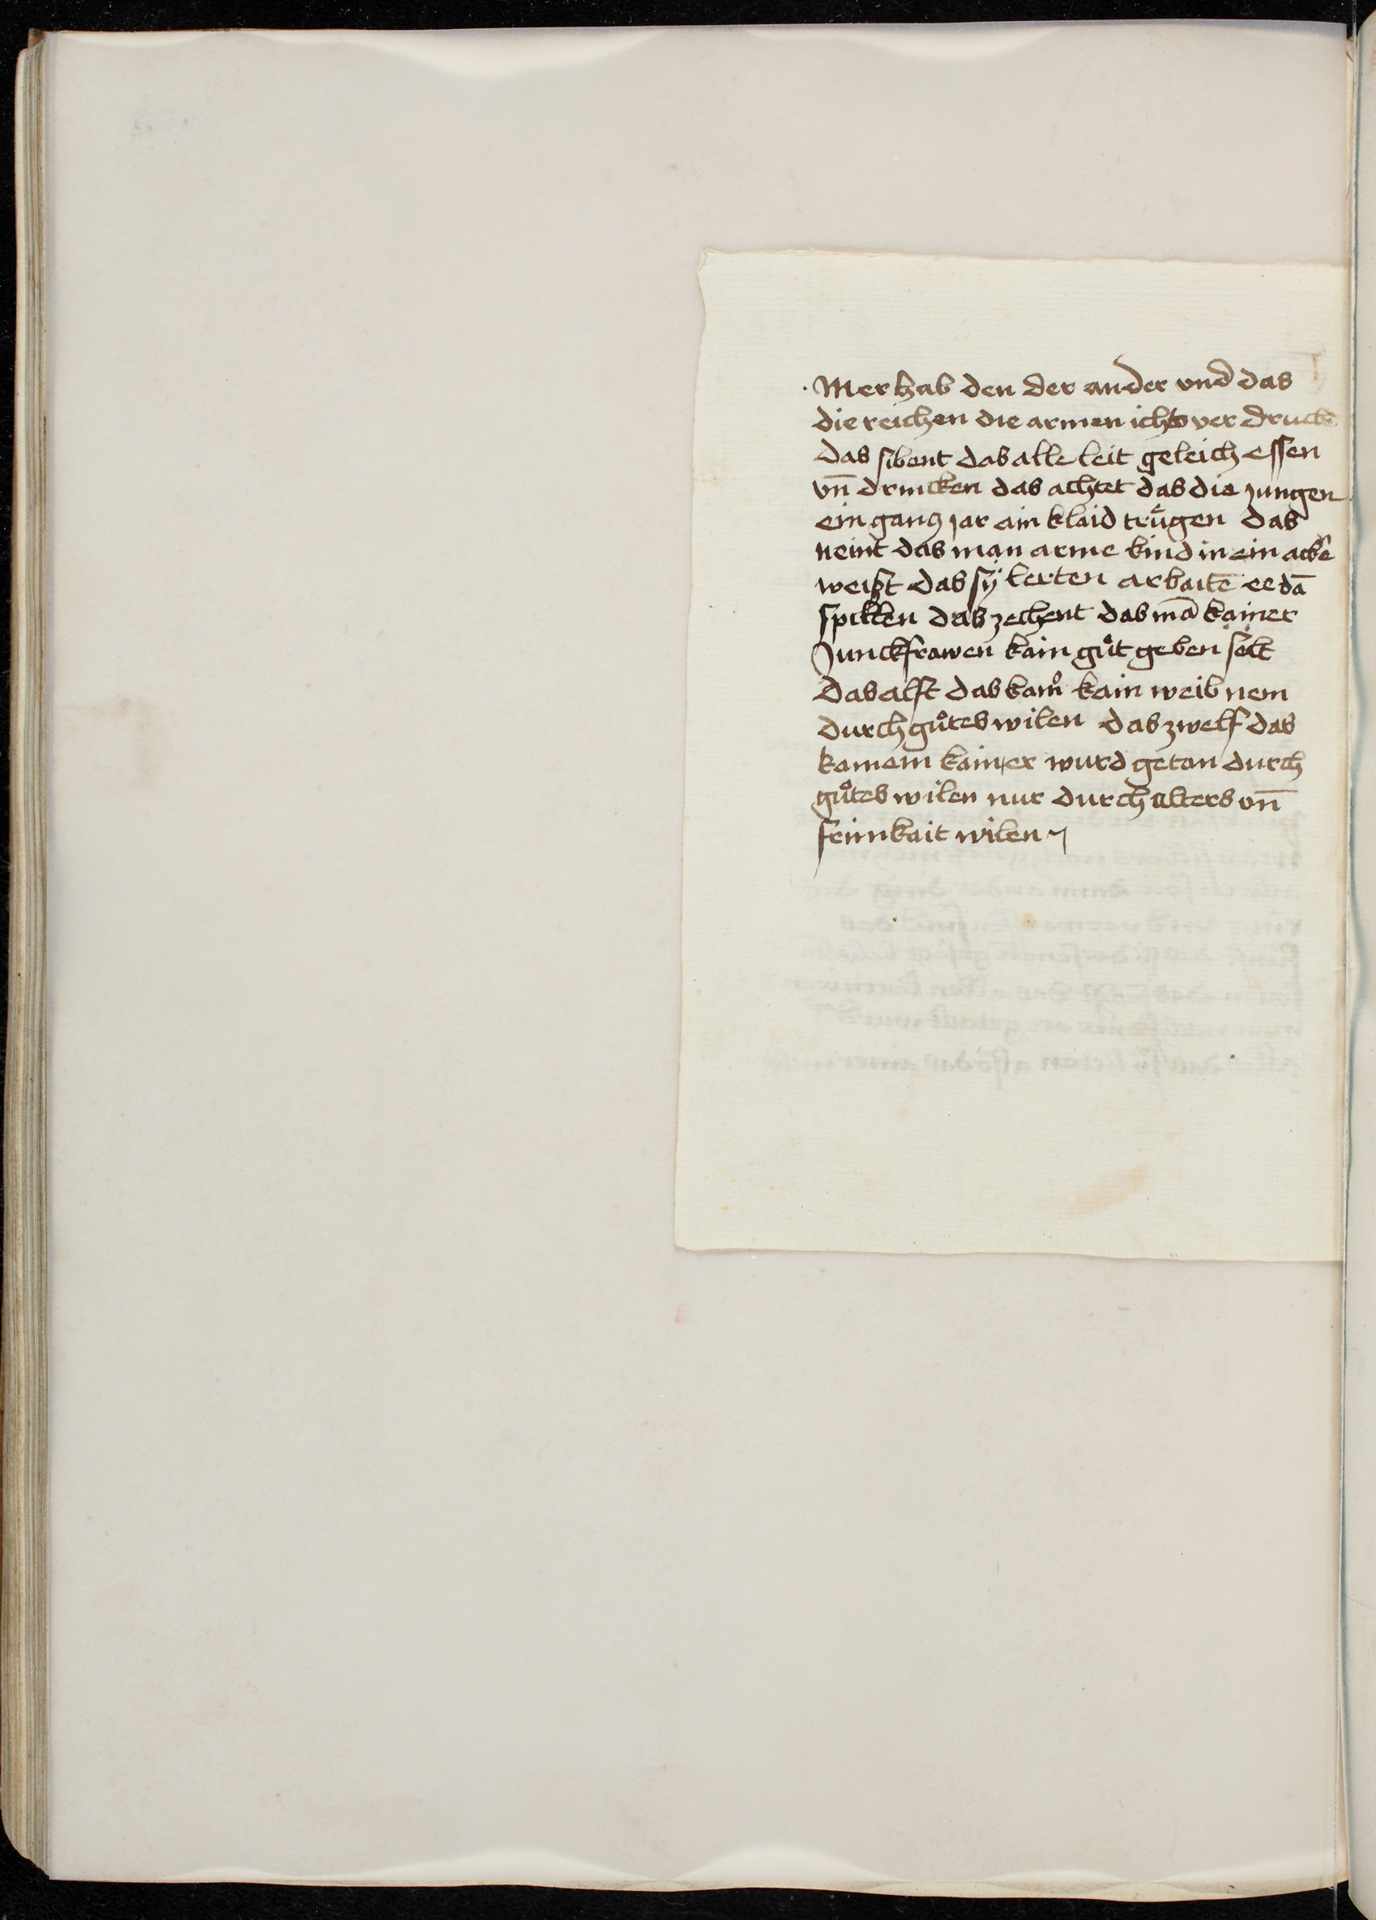 Mer hab den der ander vnd das
die reichen die armen ichts ver druckē
Das sibent das alle leit geleich essen
vn̄ drincken das achtet das die jungen
ein gancz jar ain klaid trügen das
neint das man arme kind in ein acker
weißt das sÿ lerten arbaitē ee dā
spilten das zechent das mā kainer
Junckfrawen kain gůt geben sölt
Das alft das kainr kain weib nem
durch gůtes wilen das zwelf das
kainem kainer wurd getan durch
gůtes wilen nur durch alters vn̄
feinkait wilen